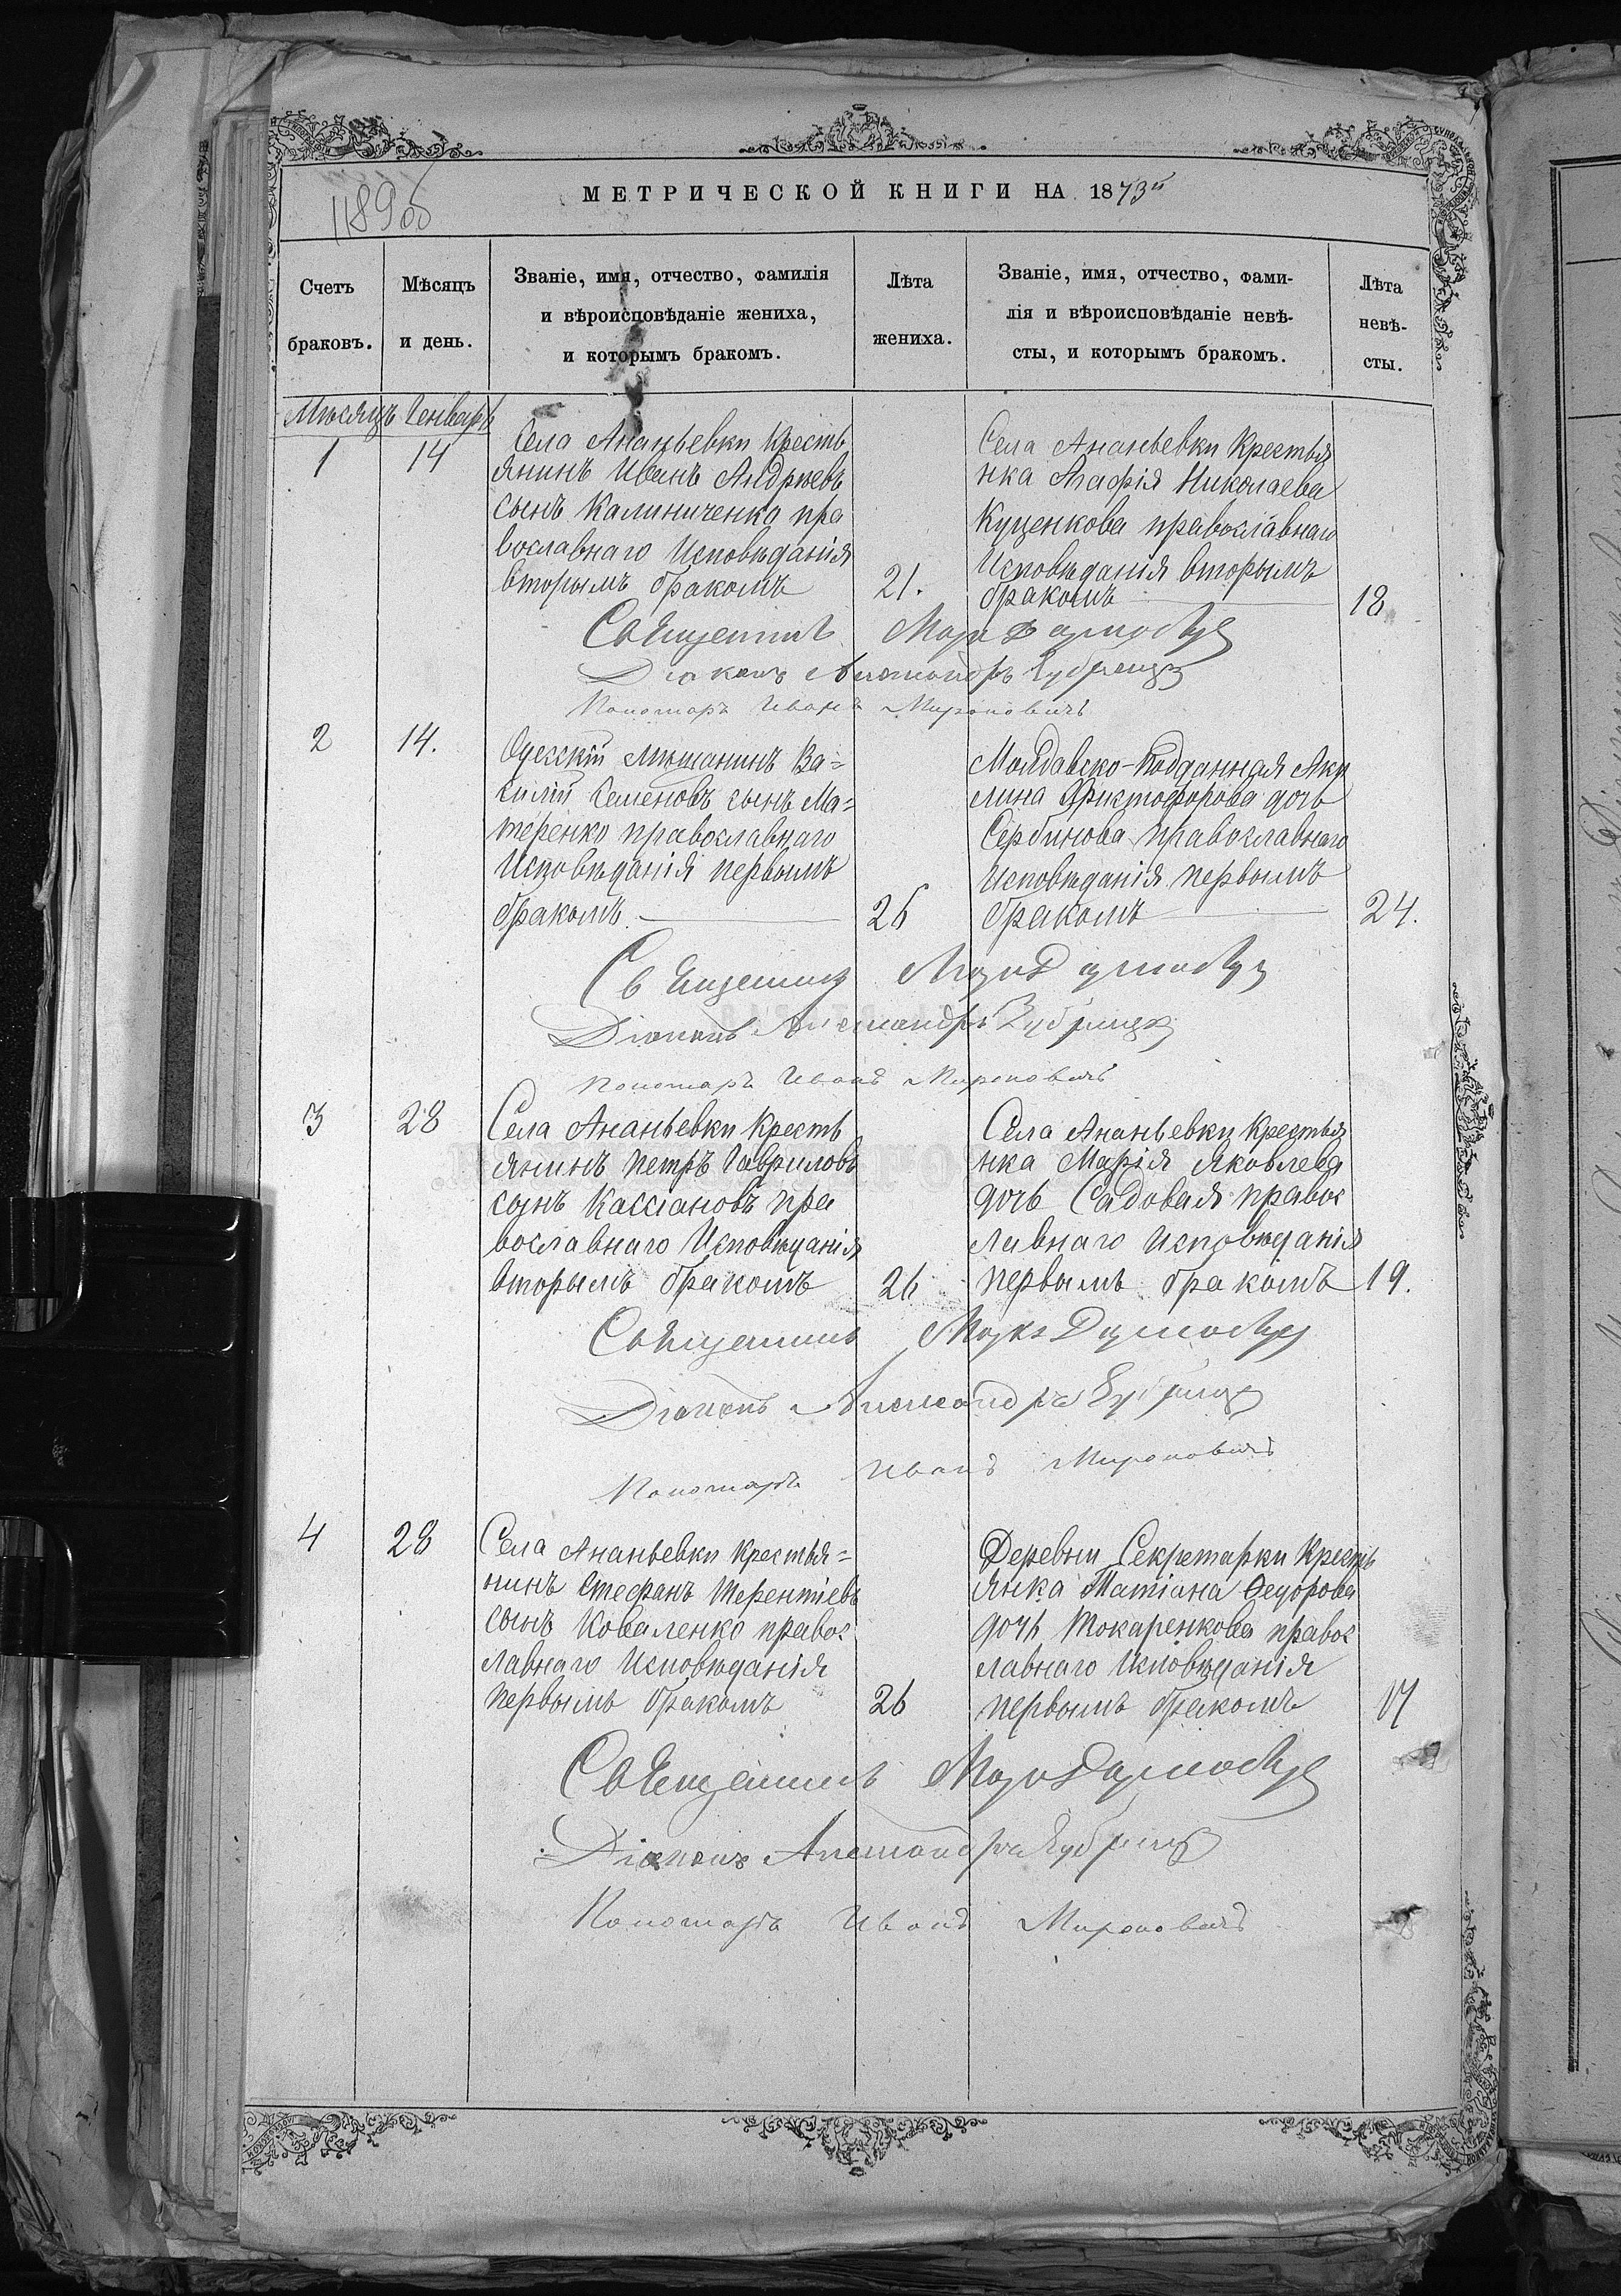 1189об
МЕТРИЧЕСКОЙ КНИГИ НА 1873й
Счетъ браковъ.
Мѣсяцъ и день.
Званіе, имя, отчество, фамилія
и вѣроисповѣданіе жениха,
и которымъ бракомъ.
Лѣта жениха.
Званіе, имя, отчество, фами-
лія и вѣроисповѣданіе невѣ-
сты, и которымъ бракомъ.
Лѣта невѣ-
сты.
Мѣсяцъ Генварь
1
14
Села Ананьевки Кресть
янинъ Иванъ Андрѣевъ
сынъ Калиниченко пра
вославнаго Исповѣданія
вторымъ бракомъ
21.
Села Ананьевки Крестья
нка Агафія Николаева
Куценкова православнаго
Исповѣданія вторымъ
бракомъ
18
Священникъ
Діаконъ Александръ Зубрицкій
Пономарь Иванъ Мироновичъ
2
14.
Одесскій мѣщанинъ Ва=
силій Семеновъ сынъ Ма=
теренко православнаго
Исповѣданія первымъ
бракомъ.
26
Молдавско-Подданная Аку
лина Христофорова дочь
Сербинова православнаго
Исповѣданія первымъ
бракомъ
24.
Священникъ
Діаконъ Александръ Зубрицкій
Пономарь Иванъ Мироновичъ
3
28
Села Ананьевки Кресть
янинъ Петръ Гавриловъ
сынъ Кассіановъ пра
вославнаго Исповѣданія
вторымъ бракомъ
26
Села Ананьевки Крестья
нка Марія Яковлева
дочь Садовая правос
лавнаго Исповѣданія
первымъ бракомъ
19.
Священникъ
Діаконъ Александръ Зубрицкій
Пономарь Иванъ Мироновичъ
4
28
Села Ананьевки Крестья=
нинъ Стефанъ Терентіевъ
сынъ Коваленко правос
лавнаго Исповѣданія
первымъ бракомъ
26
Деревни Секретарки Кресть
янка Татіана Ѳедорова
дочь Токаренкова правос
лавнаго Исповѣданія
первымъ бракомъ
17
Священникъ
Діаконъ Александръ Зубрицкій
Пономарь Иванъ Мироновичъ